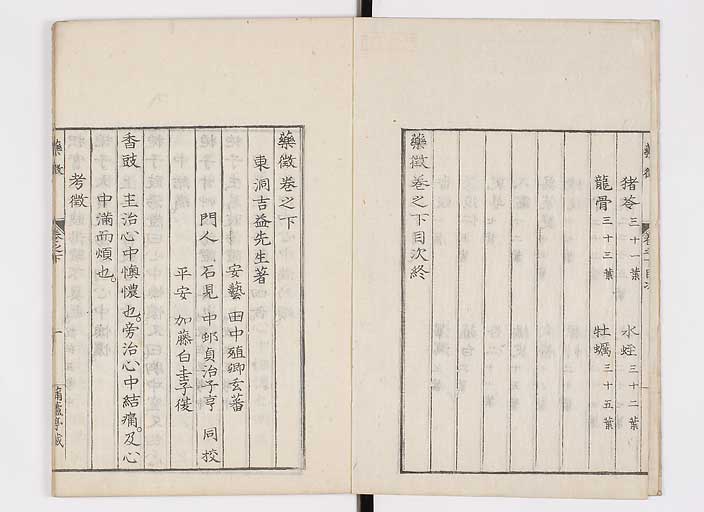 藥徵
猪苓 三十一葉 水蛭 三十二葉
龍骨 三十三葉 牡蠣 三十五葉
藥徵卷之下目次終
藥徵卷之下
東洞吉益先生著
安藝 田中殖卿玄蕃
門人 石見 中邨貞治子亨 同校
平安 加藤白圭子復
香豉 主治心中懊憹也。旁治心中結痛。及心
中滿而煩也。
考徵
藥徵 卷之下 一